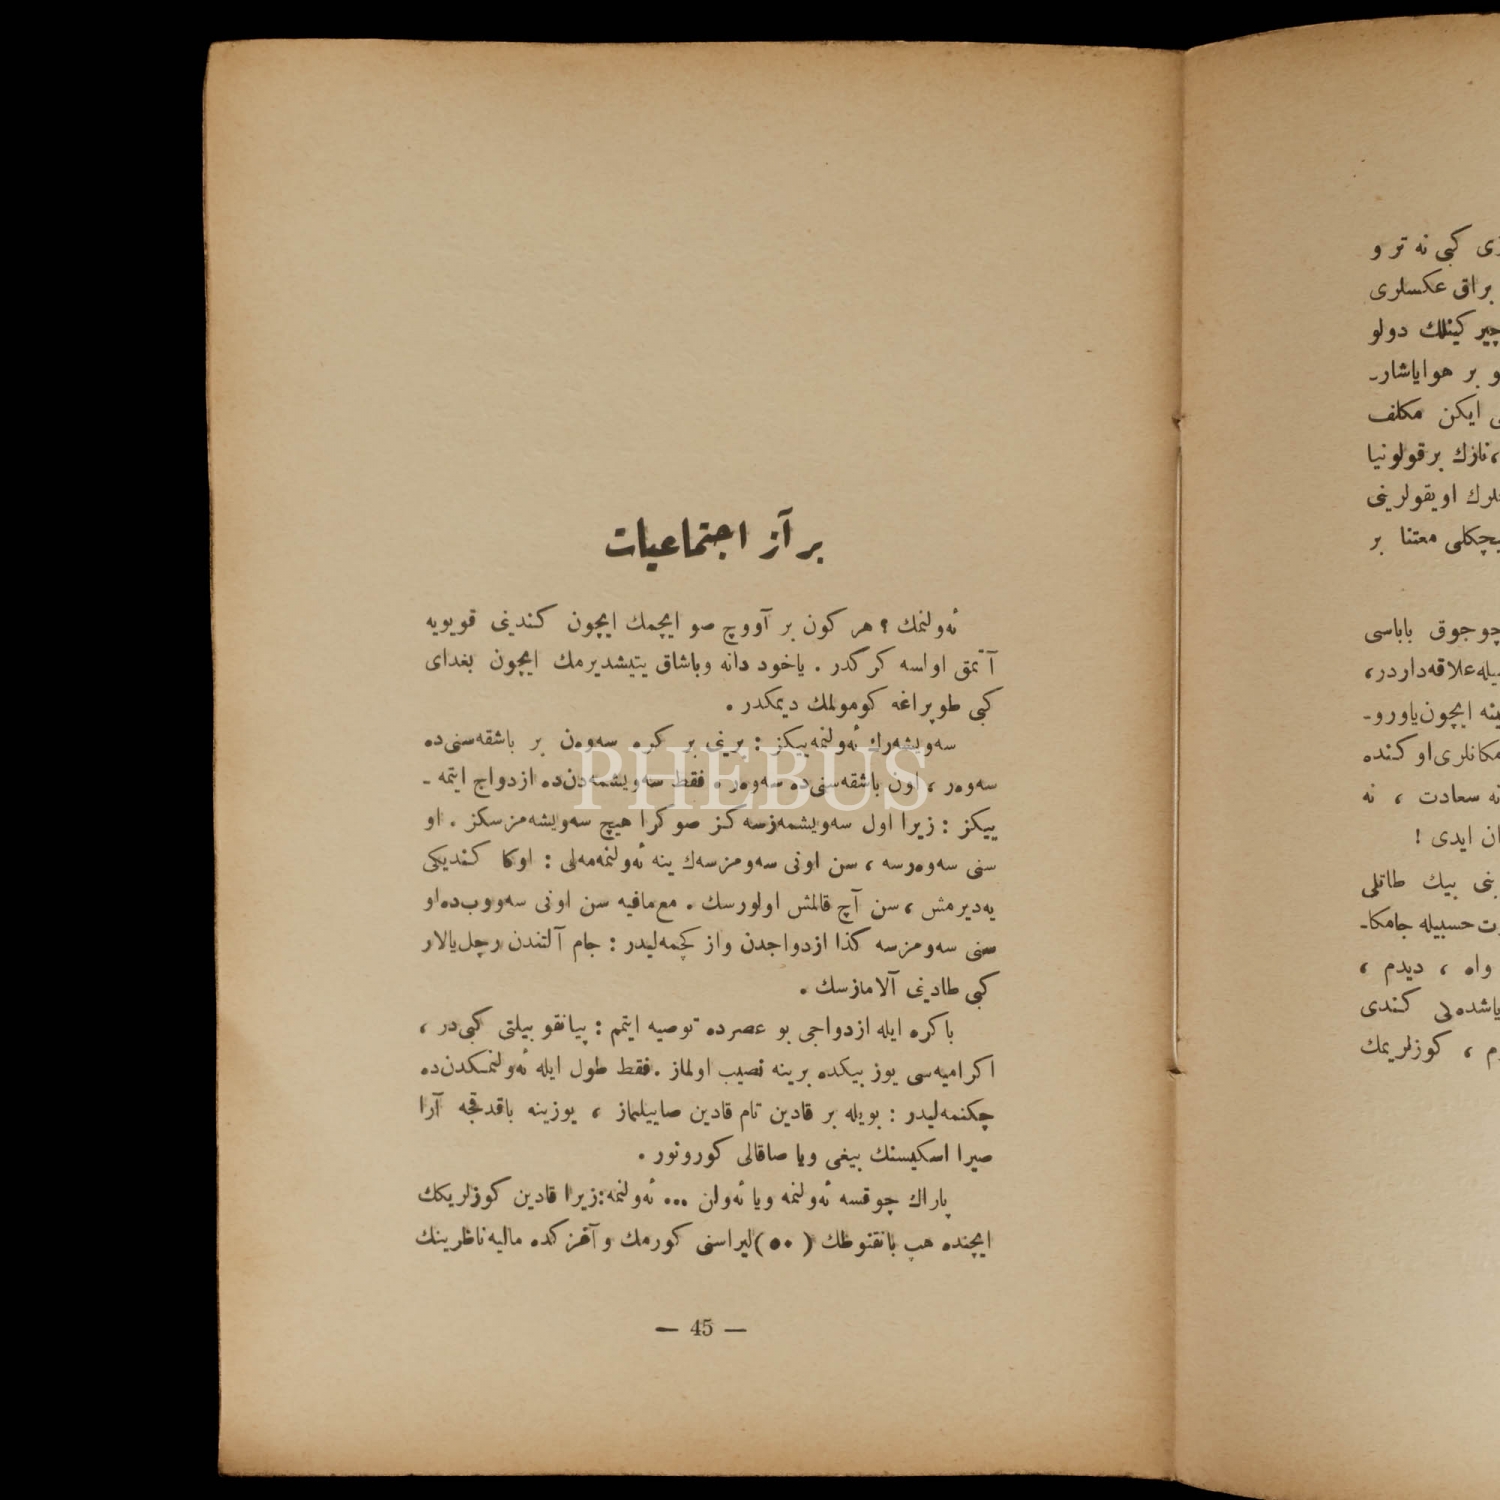 بر آز اجتماعیات
ئه‌ولنمك ؟ هر كون بر آووچ صو ایچمك ایچون كندینی قویویه
آتمق اواسه كركدر . یاخود دانه وباشاق یتیشدیرمك ایچون بغدای
كبی طوپراغه كومولمك دیمكدر .
سه‌ویشه‌رك ئه‌ولنمه‌ییكز : برینی بر كره سه‌وه‌ن بر باشقه‌سنی‌ده
سه‌وه‌ر ، اون باشقه‌سنی‌ده سه‌وه‌ر . فقط سه‌ویشمه‌دن‌ده ازدواج ایتمه ـ
ییكز : زیرا اول سه‌ویشمه‌زسه‌كز صوكرا هیچ سه‌ویشه‌مزسكز . او
سنی سه‌وه‌رسه ، سن اونی سه‌ومزسه‌ك ینه ئه‌ولنمه‌مه‌لی : اوكا كندیكی
یه‌دیرمش ، سن آچ قالمش اولورسك . مع‌مافیه سن اونی سه‌ووب‌ده‌او
سنی سه‌ومزسه كذا ازدواجدن واز كچمه‌لیدر : جام آلتندن رچل‌یالار
كبی طادینی آلامازسك .
باكره ایله ازدواجی بو عصرده توصیه ایتمم : پیانقو بیلتی كبی‌در ،
اكرامیه‌سی یوز بیكده برینه نصیب اولماز . فقط طول ایله ئه‌ولنمكدن‌ده
چكنمه‌لیدر : بویله بر قادین تام قادین صاییلماز ، یوزینه باقدقجه آرا
صیرا اسكیسنك بیغی ویا صاقالی كورونور .
پاراك چوقسه ئه‌ولنمه ویا ئه‌ولن ... ئه‌ولنمه:زیرا قادین كوزلریكك
ایچنده هپ بانقنوطك ( ٥٠ )لیراسنی كورمك و آقزكده مالیه‌ناظرینك
— 45 —
كبی نه تر و
براق عكسلری
چیركینلك دولو
و بر هوایاشار ـ
ایكن مكلف
، نازك برقولونیا
اویقولرینی
معتنا بر
چوجوق باباسی
علاقه‌داردر،
ایچون‌یاورو ـ
او كنده
نه سعادت ، نه
ایدی !
بنی بیك طاتلی
حسبیله جامكا ـ
واه ، دیدم ،
كندی
، كوزلریمك
PHEBUS